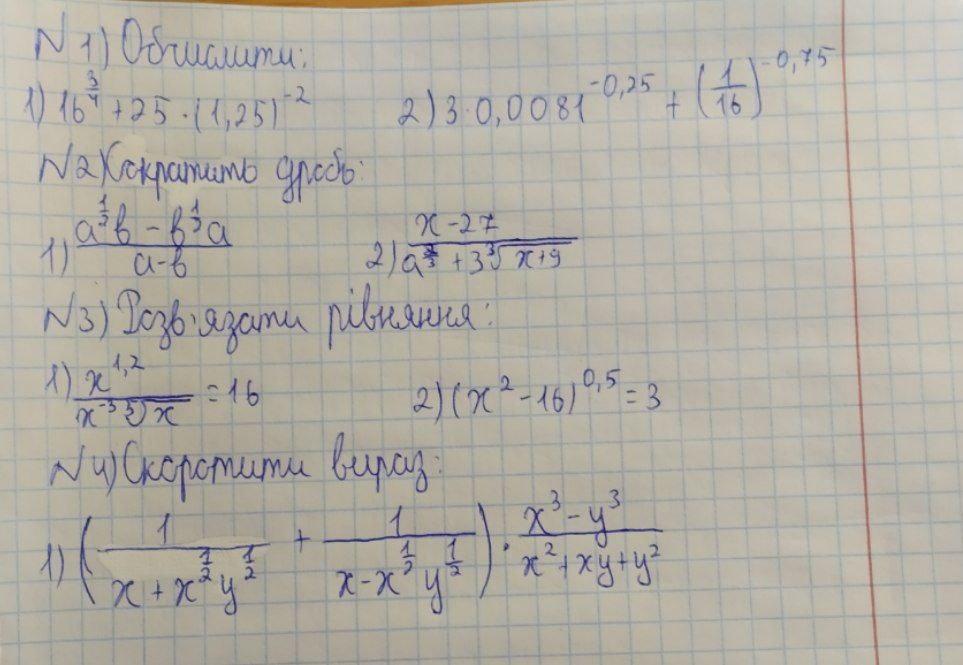 N 1) Обчислити:
1) 16^(3/4) + 25 · (1,25)^(-2) 2) 3·0,0081^(-0,25) + (1/16)^(-0,75)
N2) Сократить дробь:
1) (a^(1/2)b - b^(1/2)a)/(a-b) 2) (x-27)/(a^(2/3) + 3∛(x+9))
N3) Розв'язати рівняння:
1) x^(1,2)/(x^(-3) ⁵√x) = 16 2) (x² - 16)^(0,5) = 3
N4) Скоротити вираз:
1) (1/(x + x^(1/2)y^(1/2)) + 1/(x - x^(1/2)y^(1/2))) · (x³ - y³)/(x² + xy + y²)